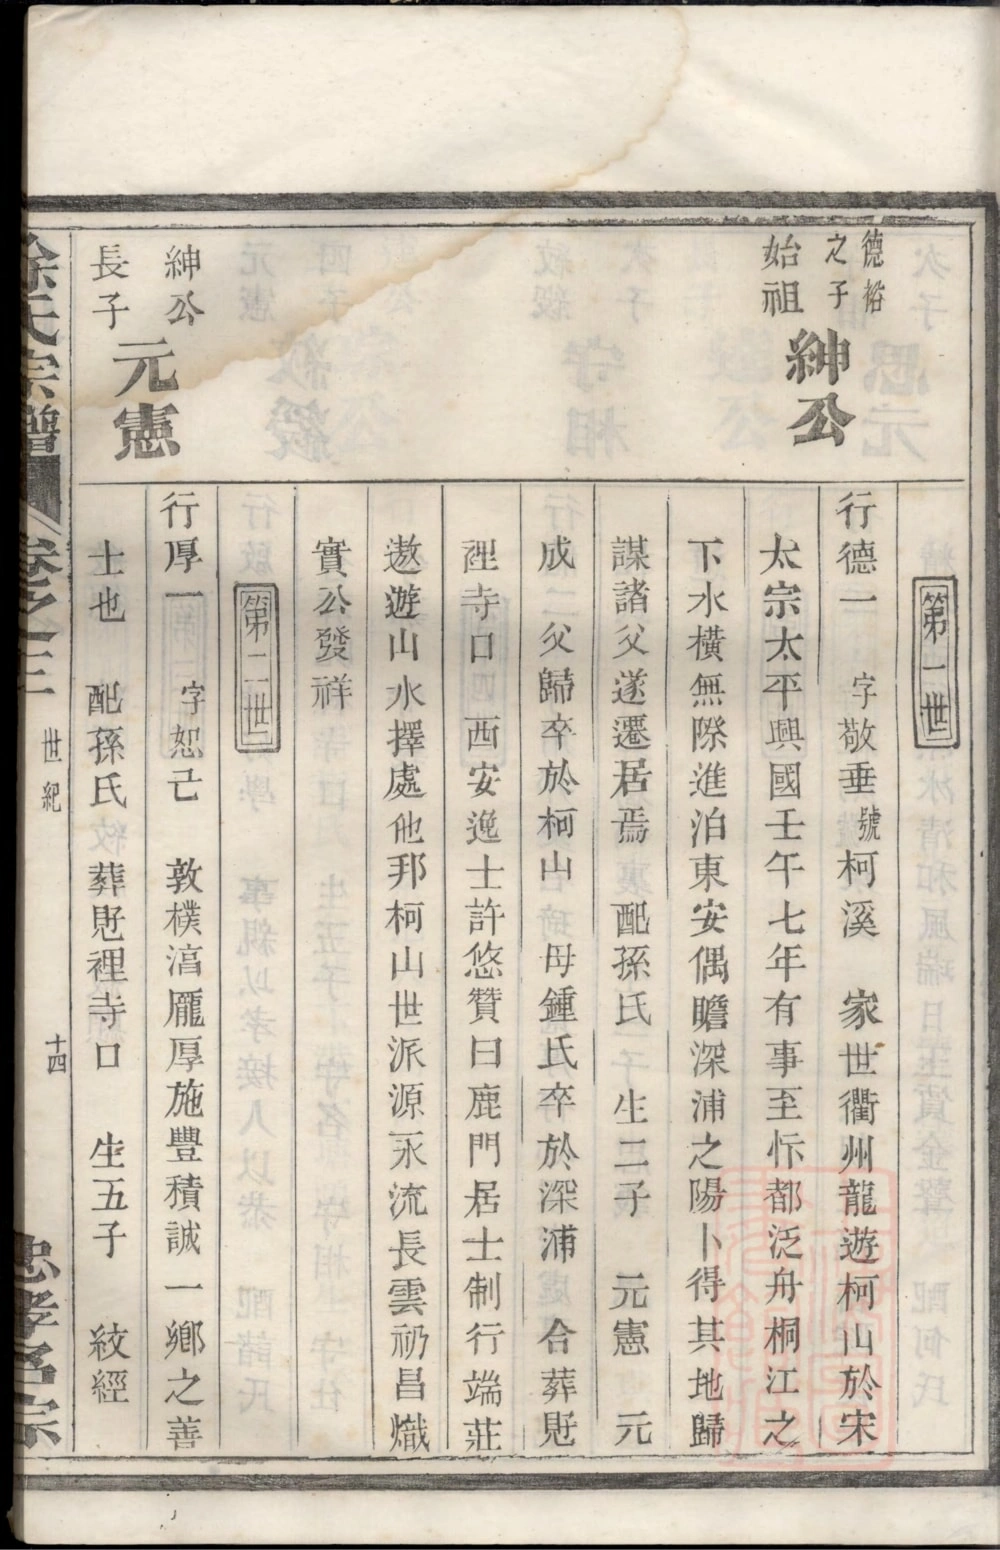 第一世
德裕
之子
始祖
紳公
行德一 字敬垂 號柯溪 家世衢州龍遊柯山於宋
太宗太平興國壬午七年有事至忭都泛舟桐江之
下水橫無際進泊東安偶瞻深浦之陽卜得其地歸
謀諸父遂遷居焉 配孫氏 生二子 元憲 元
成 父歸卒於柯山 母鍾氏卒於深浦 合葬
裡寺口 西安逸士許悠贊曰鹿門居士制行端莊
遨遊山水擇處他邦柯山世派源永流長雲礽昌熾
實公發祥
第二世
紳公
長子
元憲
行厚一 字恕己 敦樸滈龐厚施豐積誠一鄉之善
士也 配孫氏 葬 裡寺口 生五子 紋經
徐氏宗譜 卷之三 世紀 十四 忠孝名宗